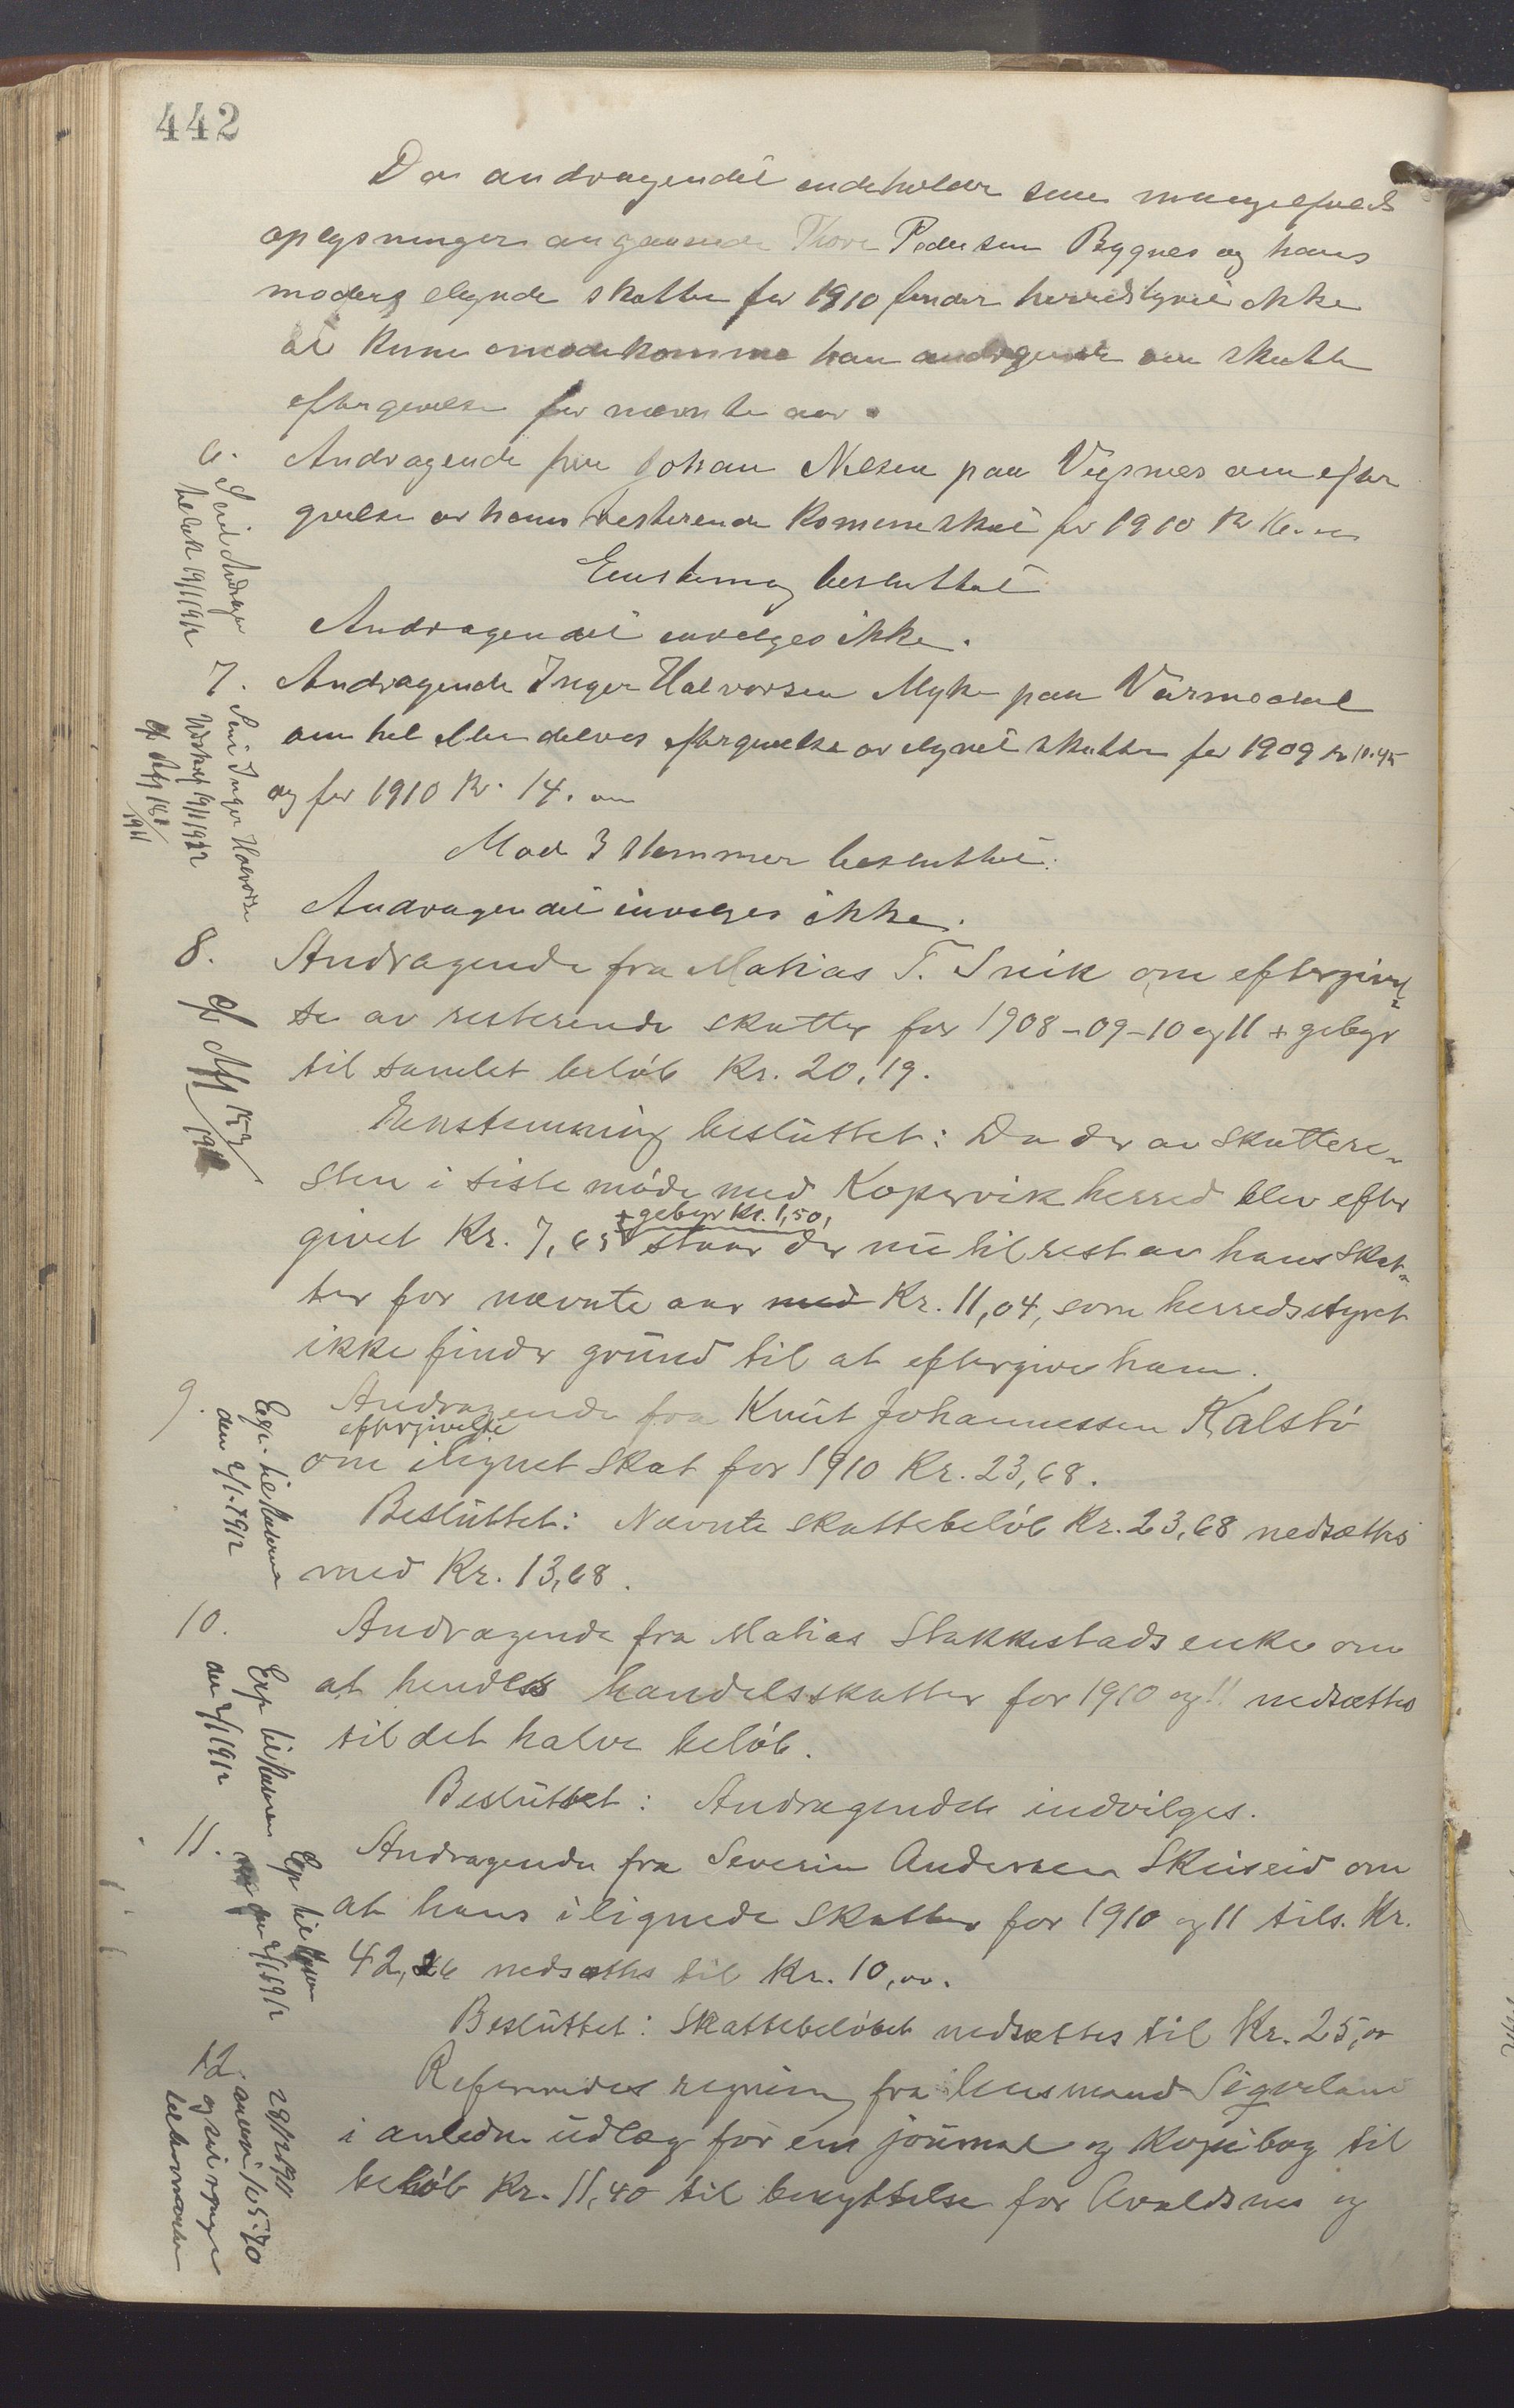 442
Da andragendet indeholder saa mangelfulde
oplysninger angaaende Thore Pedersen Bygnes og hans
moders elignde skatter for 1910 finder herredstyret ikke
at kune imødekomme han andragende om skatte
eftergivelse for nævnte aar.
6. Andragende fra Johan Nilsen paa Vigsnes om efter
givelse av hans resterende Komuneskat for 1910 Kr
Enstemig besluttet
Andragendet invilges ikke.
7. Andragende Inger Halvorsen Myhre paa Varmodal
om hel eller delves eftergivelse av elignet skatter for 1909 Kr 10.45
og for 1910 Kr. 14.
Mod 3 stemmer besluttet:
Andragendet invilges ikke.
8. Andragende fra Matias T. Snik om eftergivel-
se av resterende skatter for 1908-09-10 og 11 + gebyr
til samlet beløb Kr. 20,19.
Enstemmig besluttet: Da der av skattere-
sten i siste møde med Kopervik herred blev efter
+ gebyr Kr. 1,50,
givet Kr. 7,65 staar der nu til rest av hans skat-
ter for nævnte aar med Kr. 11,04, som herredsstyret
ikke finder grund til at eftergive ham.
9. Andragende fra Knut Johannessen Kalstø
eftergivelse
om ilignet skat for 1910 Kr. 23,68.
Besluttet: Nævnte skattebeløb Kr. 23,68 nedsættes
med Kr. 13,68.
10. Andragende fra Matias Stakkestads enke om
at hendes handelsskatter for 1910 og 11 nedsættes
til det halve beløb.
Besluttet: Andragendet indvilges.
11. Andragende fra Severin Andersen Skeiseid om
at hans ilignede skatter for 1910 og 11 tils. Kr.
42,26 nedsættes til Kr. 10,00.
Besluttet: Skattebeløbet nedsættes til Kr. 25,00
12. Refereredes regning fra lensmand Sigveland
i anledn udlæg for en journal og Kopibog til
beløb Kr. 11,40 til benyttelse for Avaldsnes og
Send Andrager
19/1 1912
Send Inger Halvorsen
19/1 1912
1911
Exp. til Kasserer
den 2/1. 1912
Exp til Kasserer
den 2/1 1912
Exp til Kasserer
den 2/1 1912